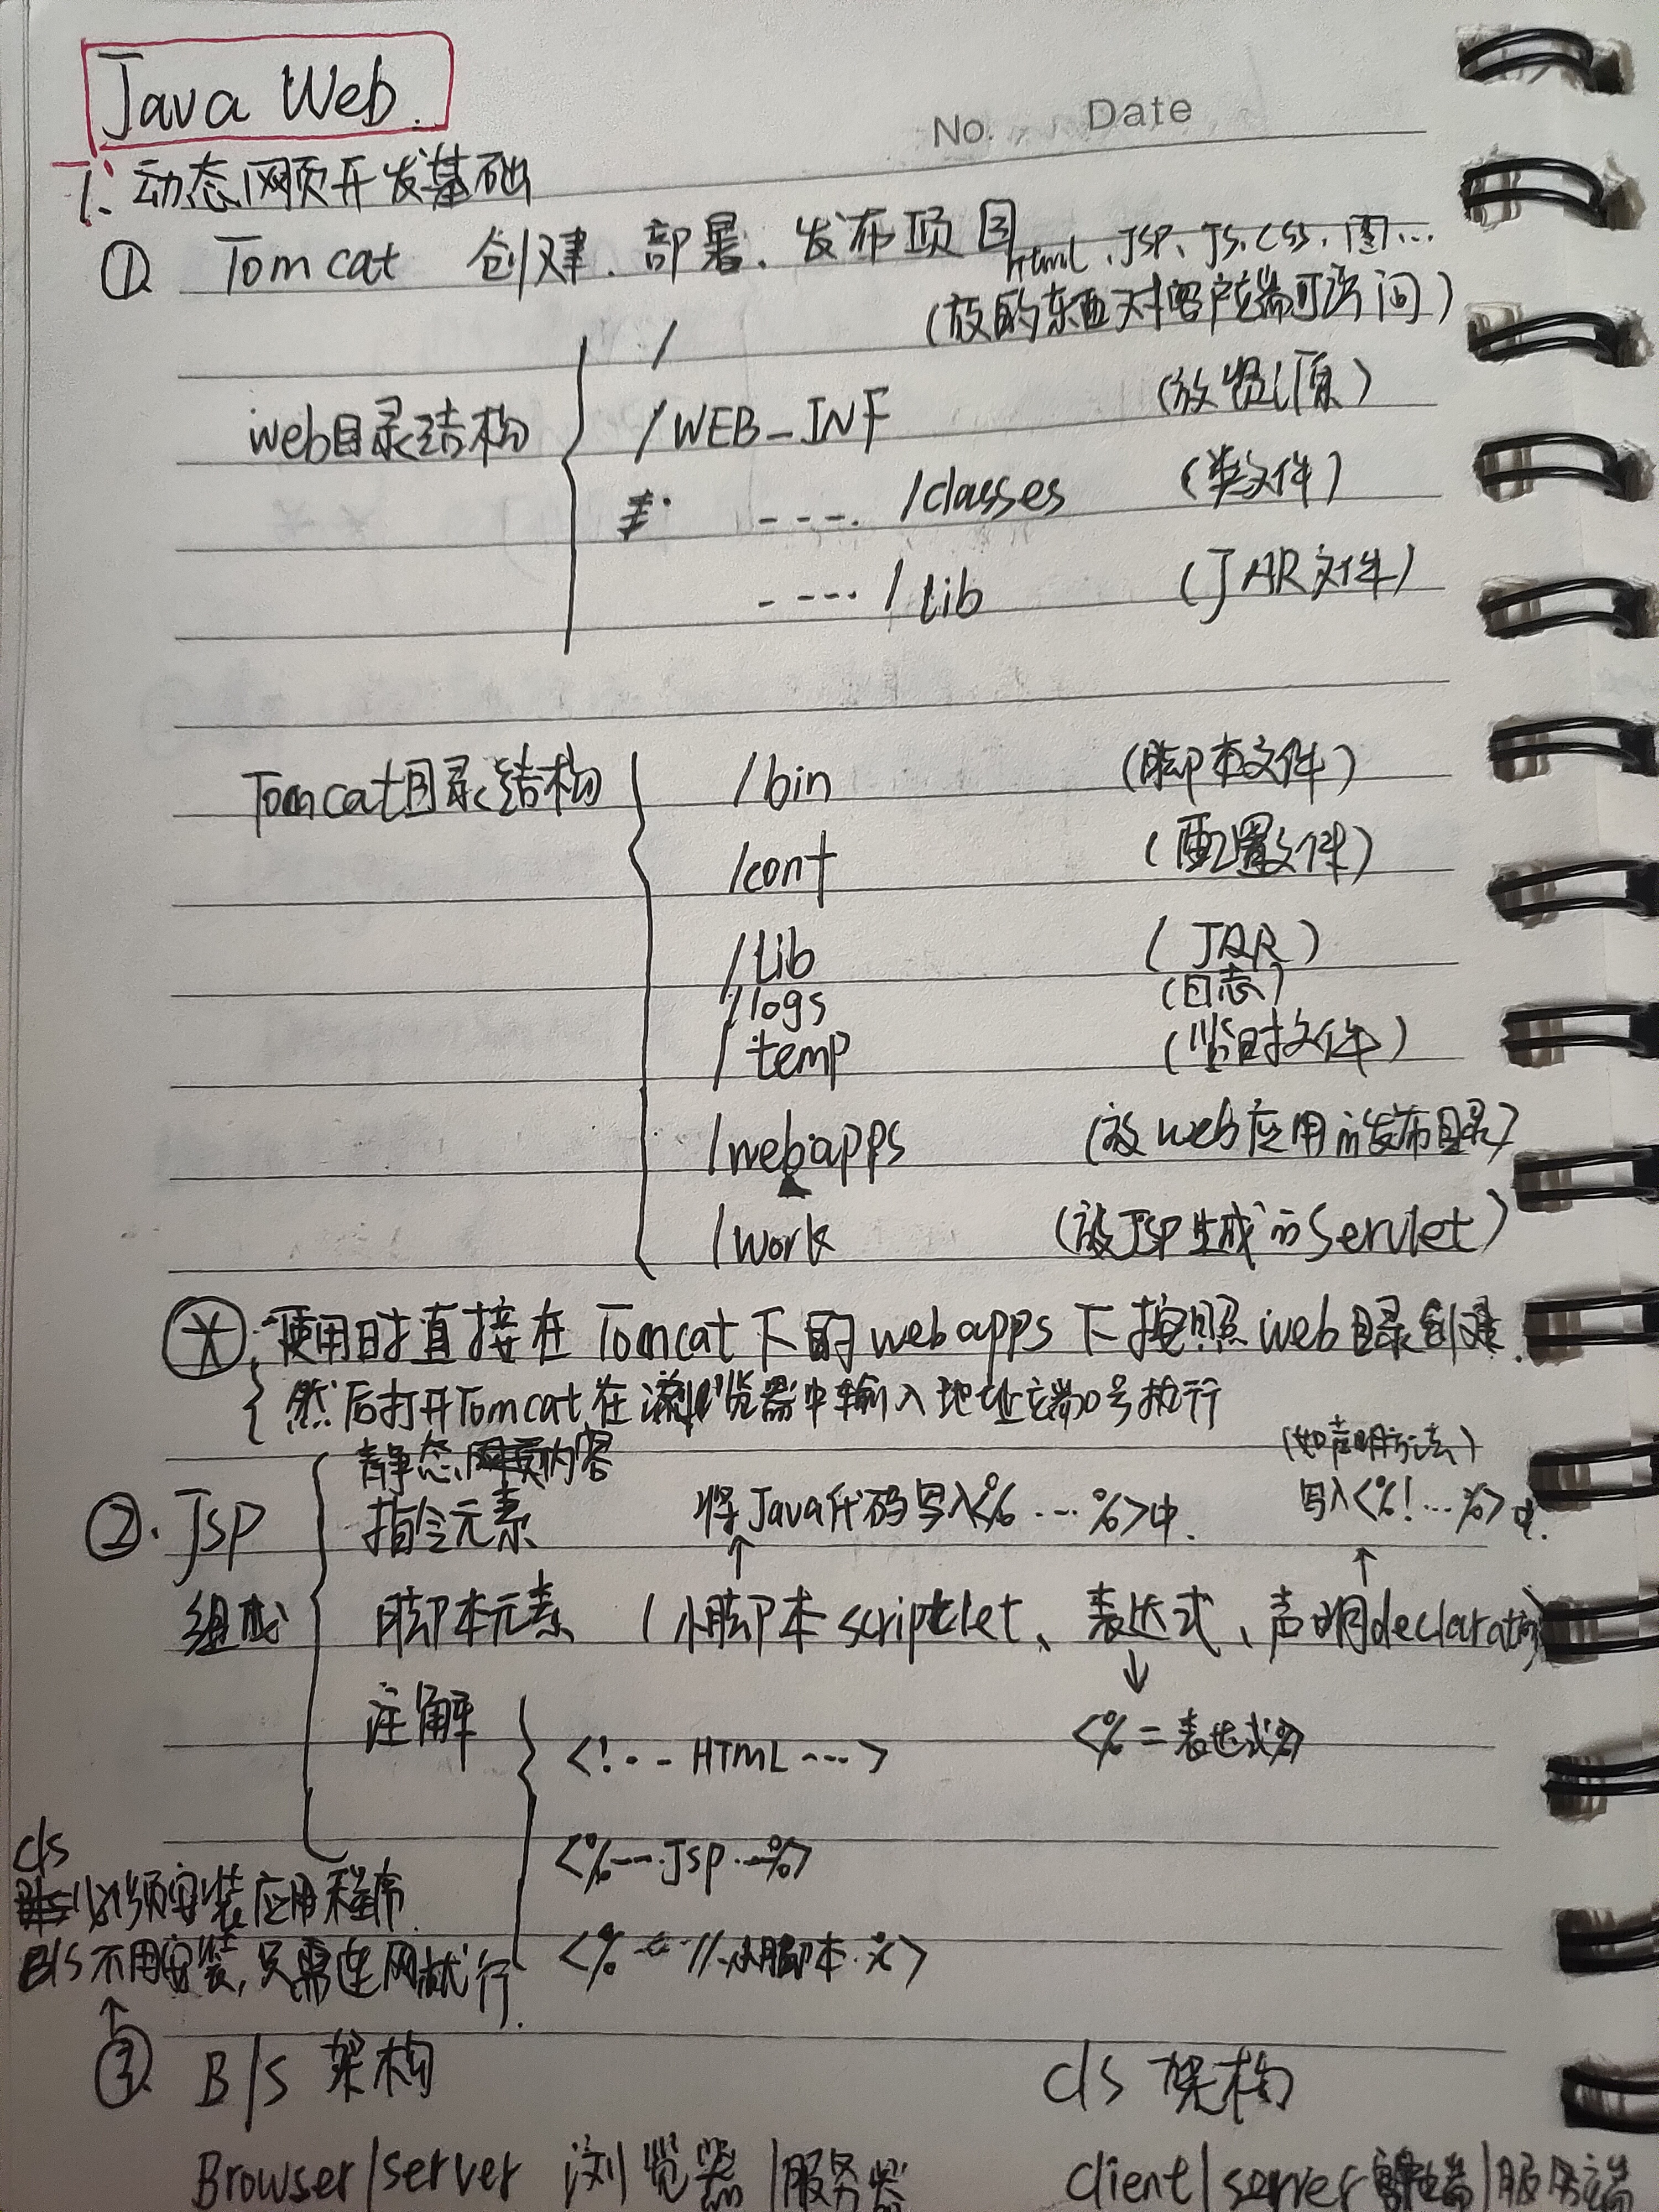 Java Web.
No. Date
1、动态网页开发基础
① Tomcat 创建、部署、发布项目
html、JSP、JS、CSS、图...
(放的东西对客户端可访问)
/
web目录结构
/WEB_INF (放资源)
---- /classes (类文件)
---- /lib (JAR文件)
Tomcat目录结构
/bin (脚本文件)
/conf (配置文件)
/lib (JAR)
/logs (日志)
/temp (临时文件)
/webapps (放web应用的发布目录)
/work (放JSP生成的Servlet)
使用时直接在Tomcat下的webapps下按照web目录创建.
然后打开Tomcat,在浏览器中输入地址端口号执行
②. JSP
组成
静态网页内容
指令元素
将Java代码写入<% ... %>中.
(如声明方法)
写入<%!...%>中.
脚本元素 (小脚本scriptlet、表达式、声明declaration)
注解
<%=表达式%>
<!-- HTML --->
<%--JSP--%>
<% // 脚本 %>
C/S
必须安装应用程序
B/S 不用安装,只需连网就行.
③ B/S 架构 C/S 架构
Browser/server 浏览器/服务器 client/server 客户端/服务端